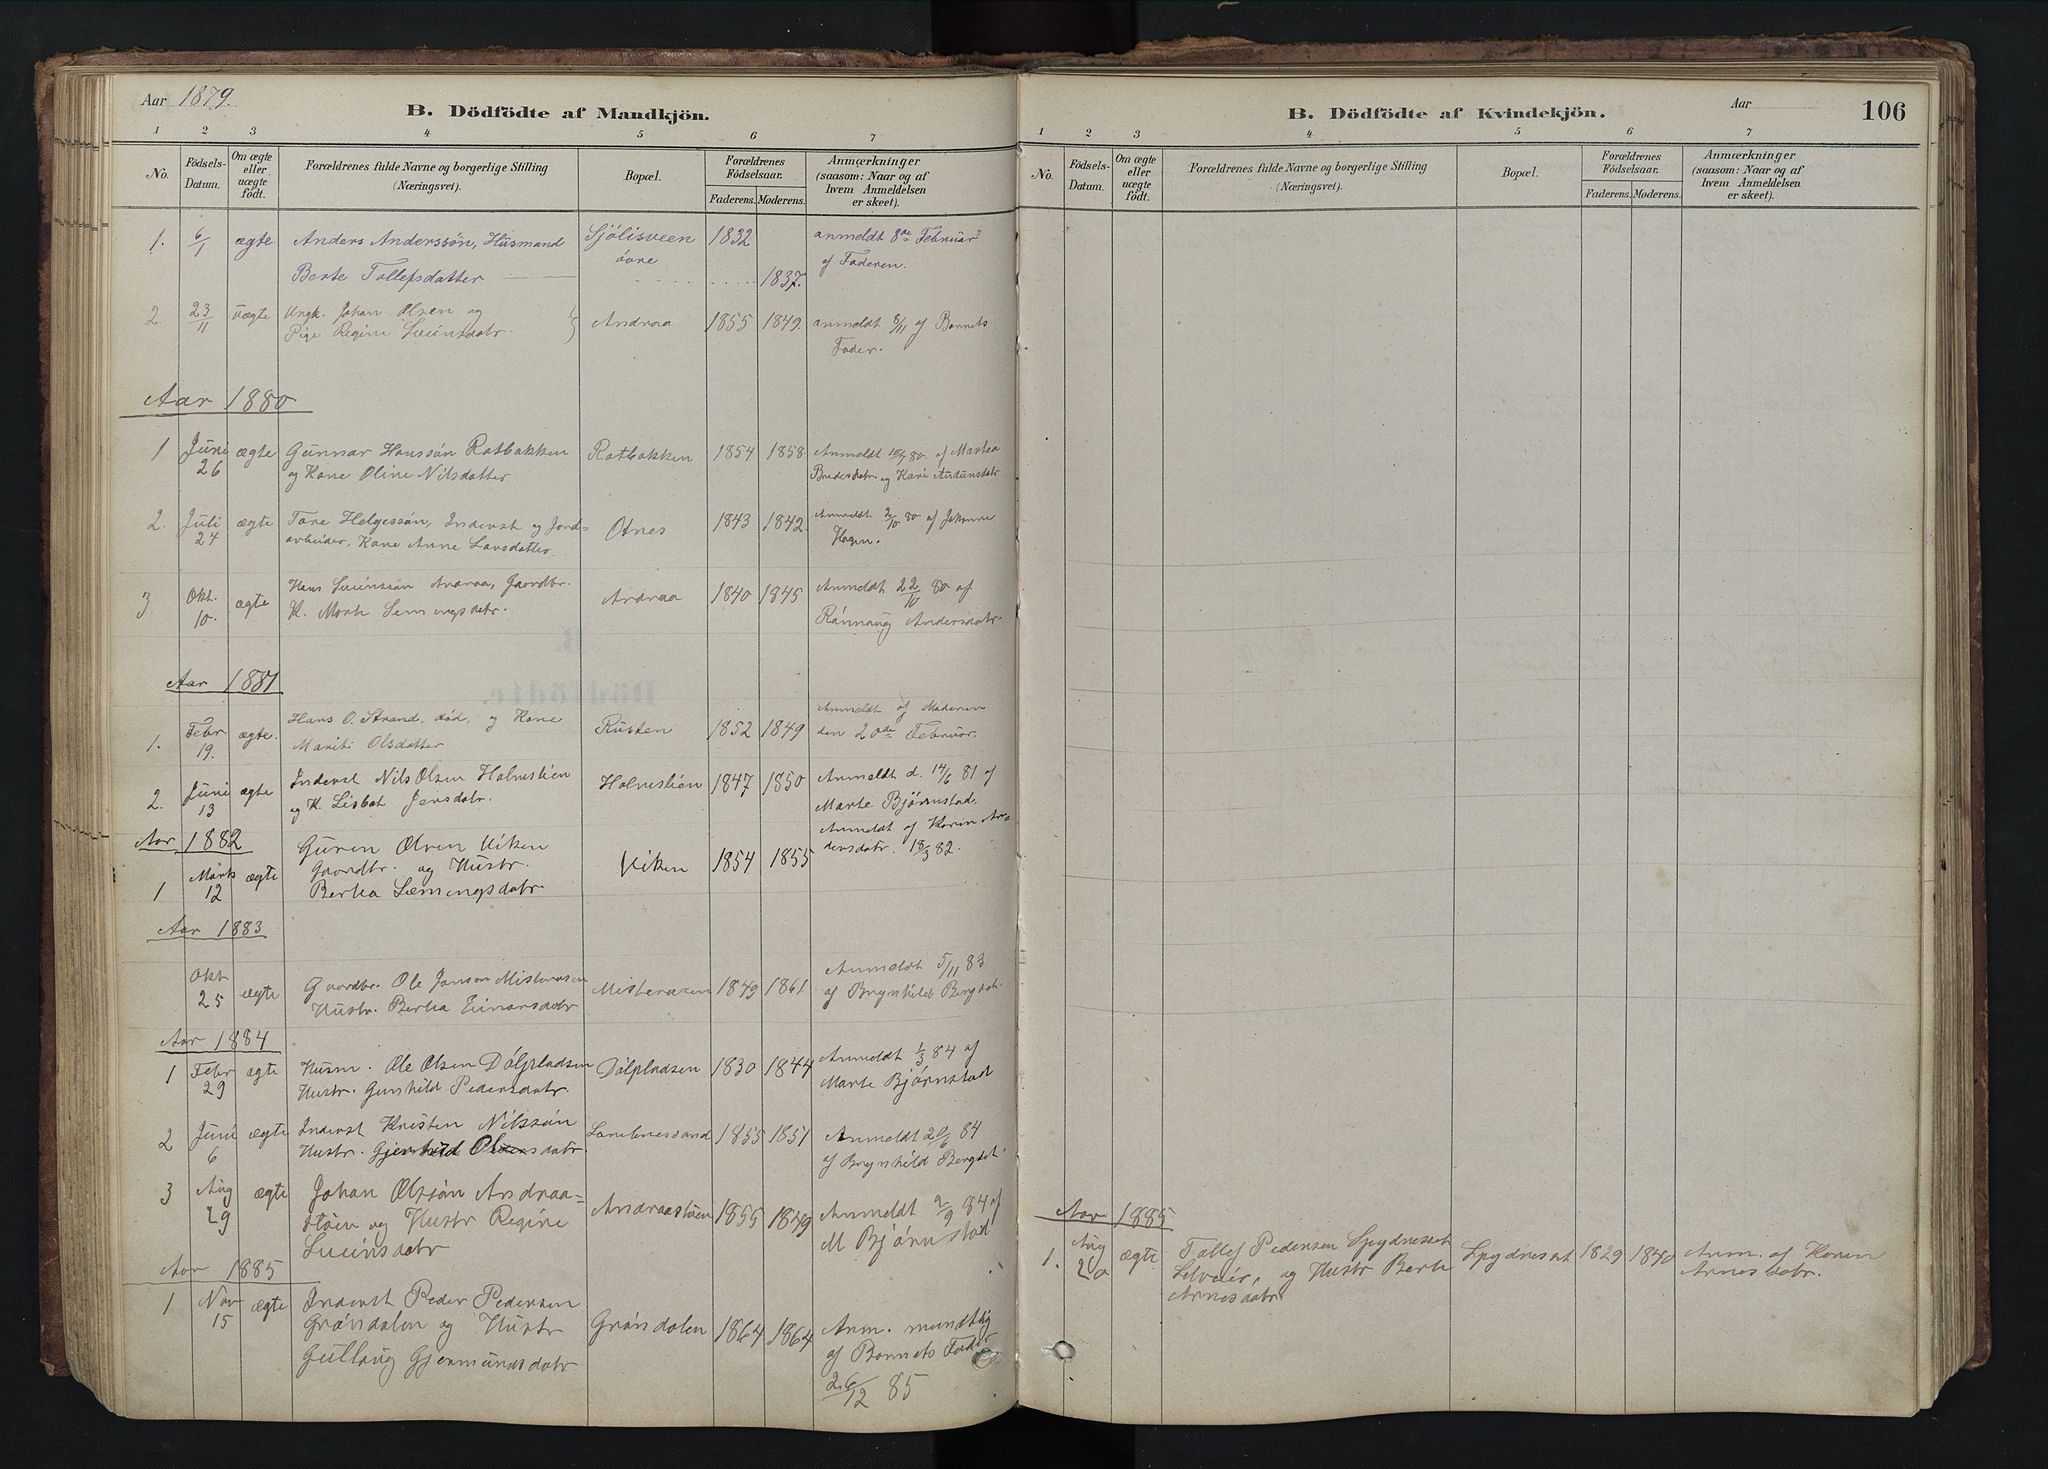 Aar 1879.
B. Dödfödte af Mandkjön.
1 2 3 4 5 6 7
No.
Födsels-
Datum.
Om ægte
eller
uægte
født.
Forældrenes fulde Navne og borgerlige Stilling
(Næringsvei).
Bopæl.
Forældrenes
Födselsaar.
Faderens. Moderens.
Anmærkninger
(saasom: Naar og af
hvem Anmeldelsen
er skeet).
1. 6/1 ægte Anders Anderssön, Husmand Sjölisveen 1832 anmeldt 8de Februar
Berte Tollefsdatter övre 1837. af Faderen.
2. 23/11 uægte Ungk. Johan Olsen og Andraa 1855 1849. anmeldt 5/11 af Barnets
Pige Regine Sueinsdatr. Fader.
Aar 1880
1 Juni ægte Gunnar Hanssön Ratbakken Ratbakken 1854 1858 Anmeldt 80 af Marthea
26 og Kone Oline Nilsdatter og Kari Audunsdatr
2. Juli ægte Tore Helgessön, Inderst og Jord- Otnes 1843 1842 Anmeldt 2/10 80 af Johanne
24 arbeider, Kone Anne Larsdatter. Hagen.
3 Okt. ægte Hans Sueinssön Andraa, Gaardbr. Andraa 1840 1845 Anmeldt 22/10 80 af
10. K. Marte Lemingsdatr. Rönnaug Andersdatr.
Aar 1881
1. Febr. ægte. Hans O. Strand, död, og Kone Rusten 1852 1849 Anmeldt af Moderen
19. Marit Olsdatter den 20de Februar.
2. Juni ægte Inderst Nils Olsen Holmslien Holmslien 1847 1850 Anmeldt d. 14/6 81 af
13 og K. Lisbet Jensdatr. Marte Bjørnstad.
Aar 1882
1 Marts ægte Guren Olsen Viken Viken 1854 1855 Anmeldt af Karen An-
12 Gaardbr. og Hustr. dersdatr. 18/3 82.
Bertha Læmingsdatr.
Aar 1883
Okt ægte Gaardbr. Ole Jonsen Misteraasen Misteraasen 1849 1861 Anmeldt 5/11 83
25 Hustr. Bertha Einarsdatr af Brynhild Bergset.
Aar 1884
1 Febr ægte Husm. Ole Olsen Dölpladsen Dölpladsen 1830 1844 Anmeldt 1/3 84 af
29 Hustr. Gunhild Pedersdatr. Marte Björnstad
2 Juni ægte Inderst Kristen Nilssön 1855 1851 Anmeldt 84
6 Hustr. Gjenhild Olsensdatr. af Brynhild Bergset.
3 Aug ægte Johan Olssön Andraa- Andraastöen 1855 1849 Anmeldt 2/9 84 af
29 stöen og Hustr Regine M Bjørnstad
Sueinsdatr
Aar 1885
1 Nov ægte Inderst Peder Pedersen Gröndalen 1864 1864 Anm. mundtlig
15 Gröndalen og Hustr af Barnets Fader
Gullaug Gjermundsdatr 26/12 85
B. Dödfödte af Kvindekjön.
Aar
106
1 2 3 4 5 6 7
No.
Födsels-
Datum.
Om ægte
eller
uægte
födt.
Forældrenes fulde Navne og borgerlige Stilling
(Næringsvei).
Bopæl.
Forældrenes
Födselsaar.
Faderens. Moderens.
Anmærkninger
(saasom: Naar og af
hvem Anmeldelsen
er skeet).
Aar 1885
1. Aug ægte Tollef Pedersen Spydnesset Spydneset 1829 1840 Anm. af Karen
20 Selveier, og Hustr Berte Arnesdatr.
Arnesdatr